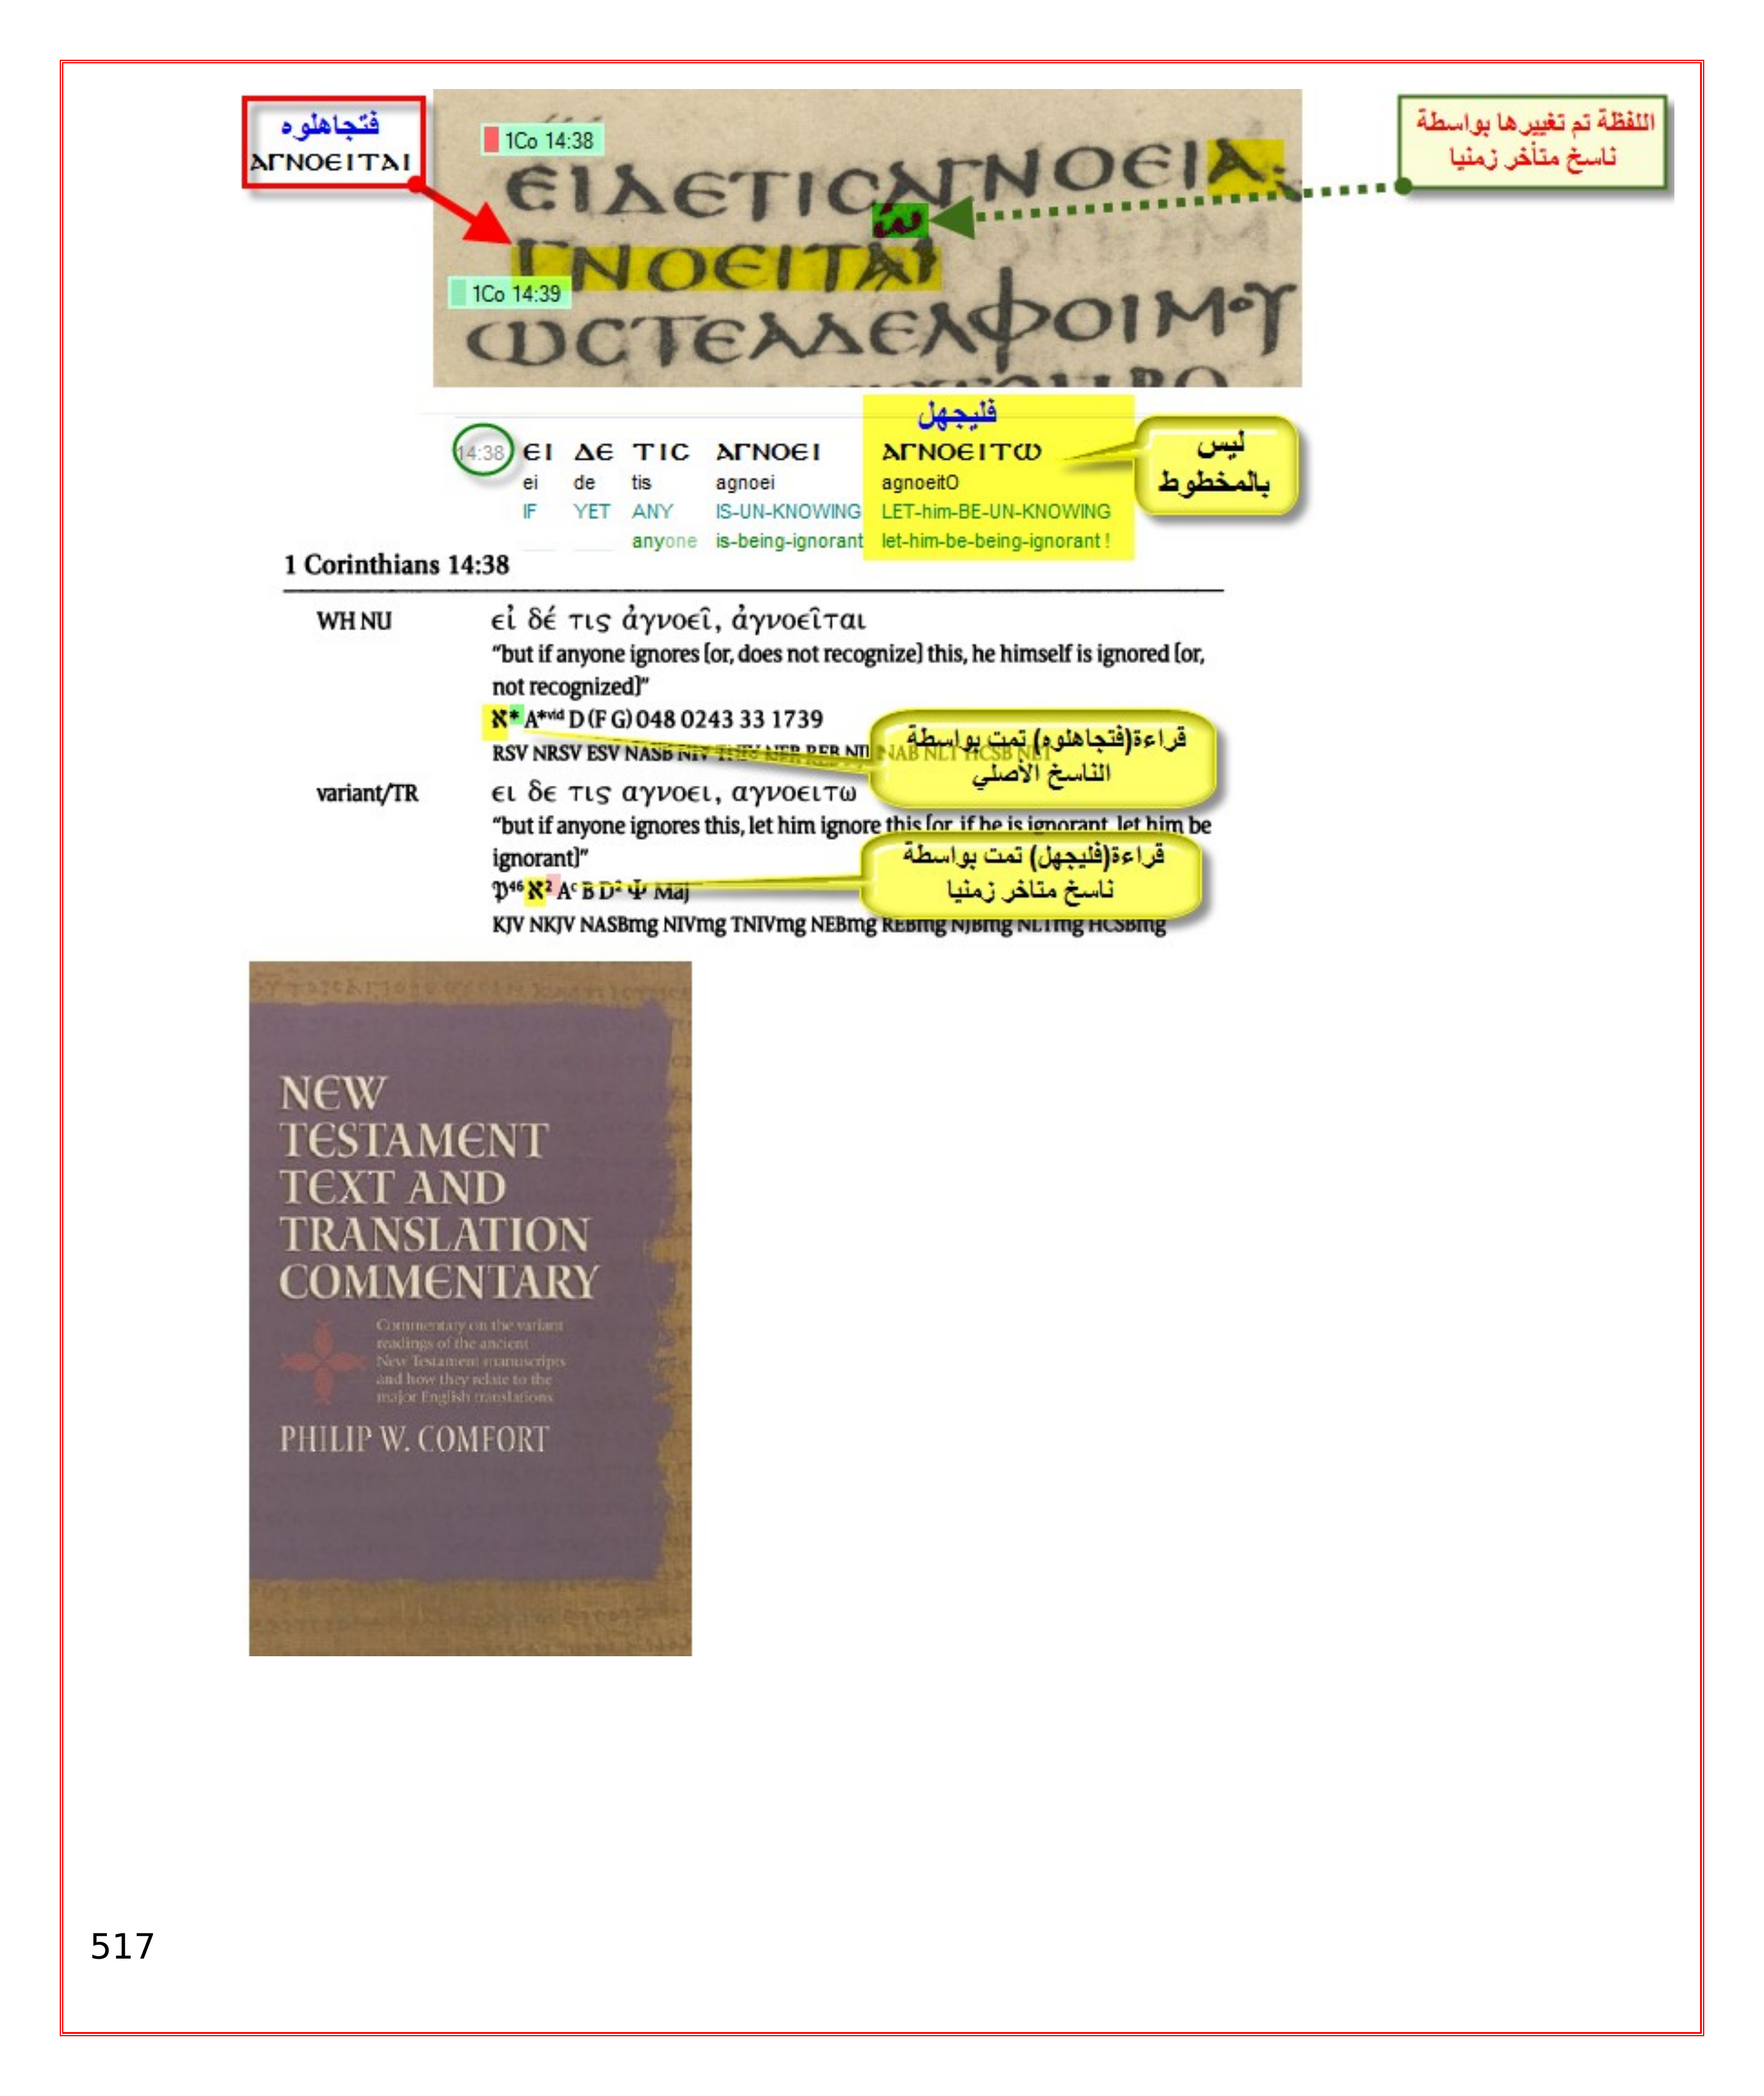 فتجاهلوه
ⲀΓNOEITAI
1Co 14:38
ЄIΔЄTICAΓNOЄIA
ω
ΓNOЄITAI
1Co 14:39
ωCTЄAΔЄΛΦOIMOY
اللفظة تم تغييرها بواسطة
ناسخ متأخر زمنيا
فليجهل
14:38 ЄI ΔЄ TIC AΓNOЄI AΓNOЄITω
ei de tis agnoei agnoeitO
IF YET ANY IS-UN-KNOWING LET-him-BE-UN-KNOWING
anyone is-being-ignorant let-him-be-being-ignorant !
ليس
بالمخطوط
1 Corinthians 14:38
WH NU εἰ δέ τις ἀγνοεῖ, ἀγνοεῖται
“but if anyone ignores [or, does not recognize] this, he himself is ignored [or,
not recognized]”
ℵ* A*vid D (F G) 048 0243 33 1739
RSV NRSV ESV NASB NIV TNIV NEB REB NJB NAB NLT HCSB NET
قراءة(فتجاهلوه) تمت بواسطة
الناسخ الأصلي
variant/TR ει δε τις αγνοει, αγνοειτω
“but if anyone ignores this, let him ignore this [or, if he is ignorant, let him be
ignorant]”
𝔓46 ℵ2 Ac B D2 Ψ Maj
KJV NKJV NASBmg NIVmg TNIVmg NEBmg REBmg NJBmg NLTmg HCSBmg
قراءة(فليجهل) تمت بواسطة
ناسخ متاخر زمنيا
NEW
TESTAMENT
TEXT AND
TRANSLATION
COMMENTARY
Commentary on the variant
readings of the ancient
New Testament manuscripts
and how they relate to the
major English translations
PHILIP W. COMFORT
517